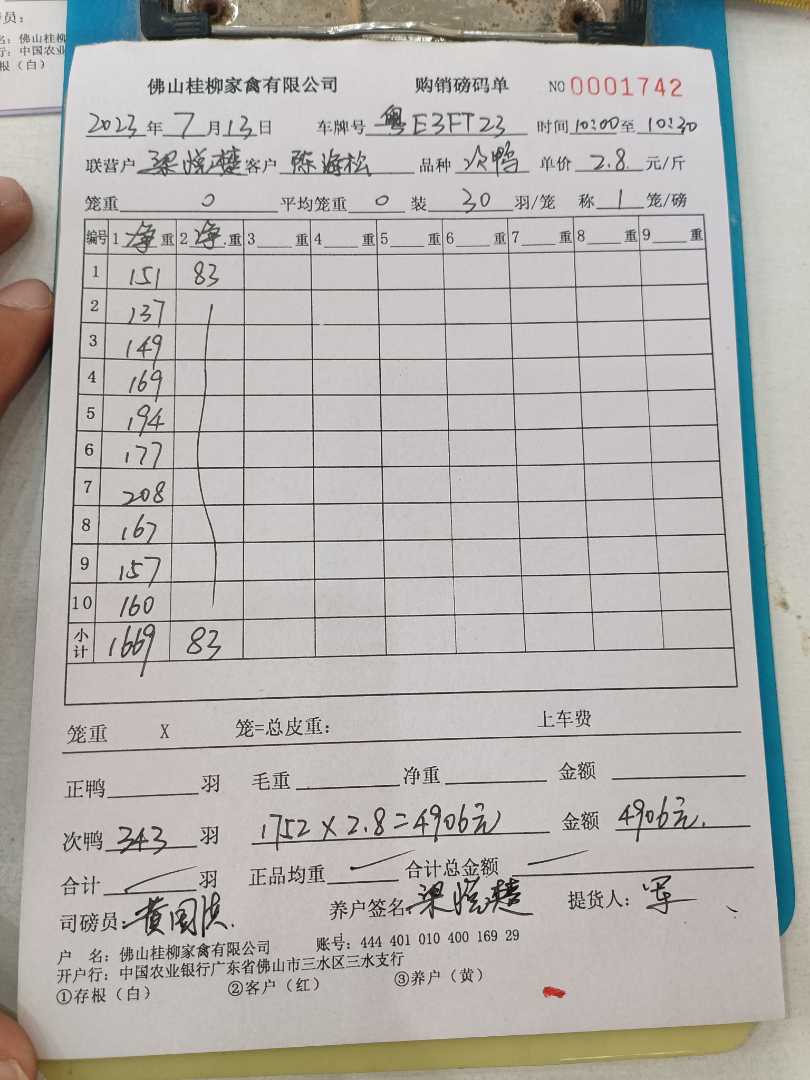 员:
名: 佛山桂柳
行: 中国农业
根（白）
佛山桂柳家禽有限公司 购销磅码单 NO 0001742
2023 年 7 月 13 日 车牌号 粤E3FT23 时间 10:00 至 10:30
联营户 梁 客户 陈海松 品种 次鸭 单价 2.8 元/斤
笼重 0 平均笼重 0 装 30 羽/笼 称 1 笼/磅
编号 1 净 重 2 净 重 3 重 4 重 5 重 6 重 7 重 8 重 9 重
1 151 83
2 137
3 149
4 169
5 194
6 177
7 208
8 167
9 157
10 160
小计 1669 83
笼重 X 笼=总皮重: 上车费
正鸭 羽 毛重 净重 金额
次鸭 343 羽 1752 × 2.8 = 4906元 金额 4906元.
合计 羽 正品均重 合计总金额
司磅员: 黄国 养户签名: 梁 提货人: 军
户 名: 佛山桂柳家禽有限公司 账号: 444 401 010 400 169 29
开户行: 中国农业银行广东省佛山市三水区三水支行
①存根（白） ②客户（红） ③养户（黄）